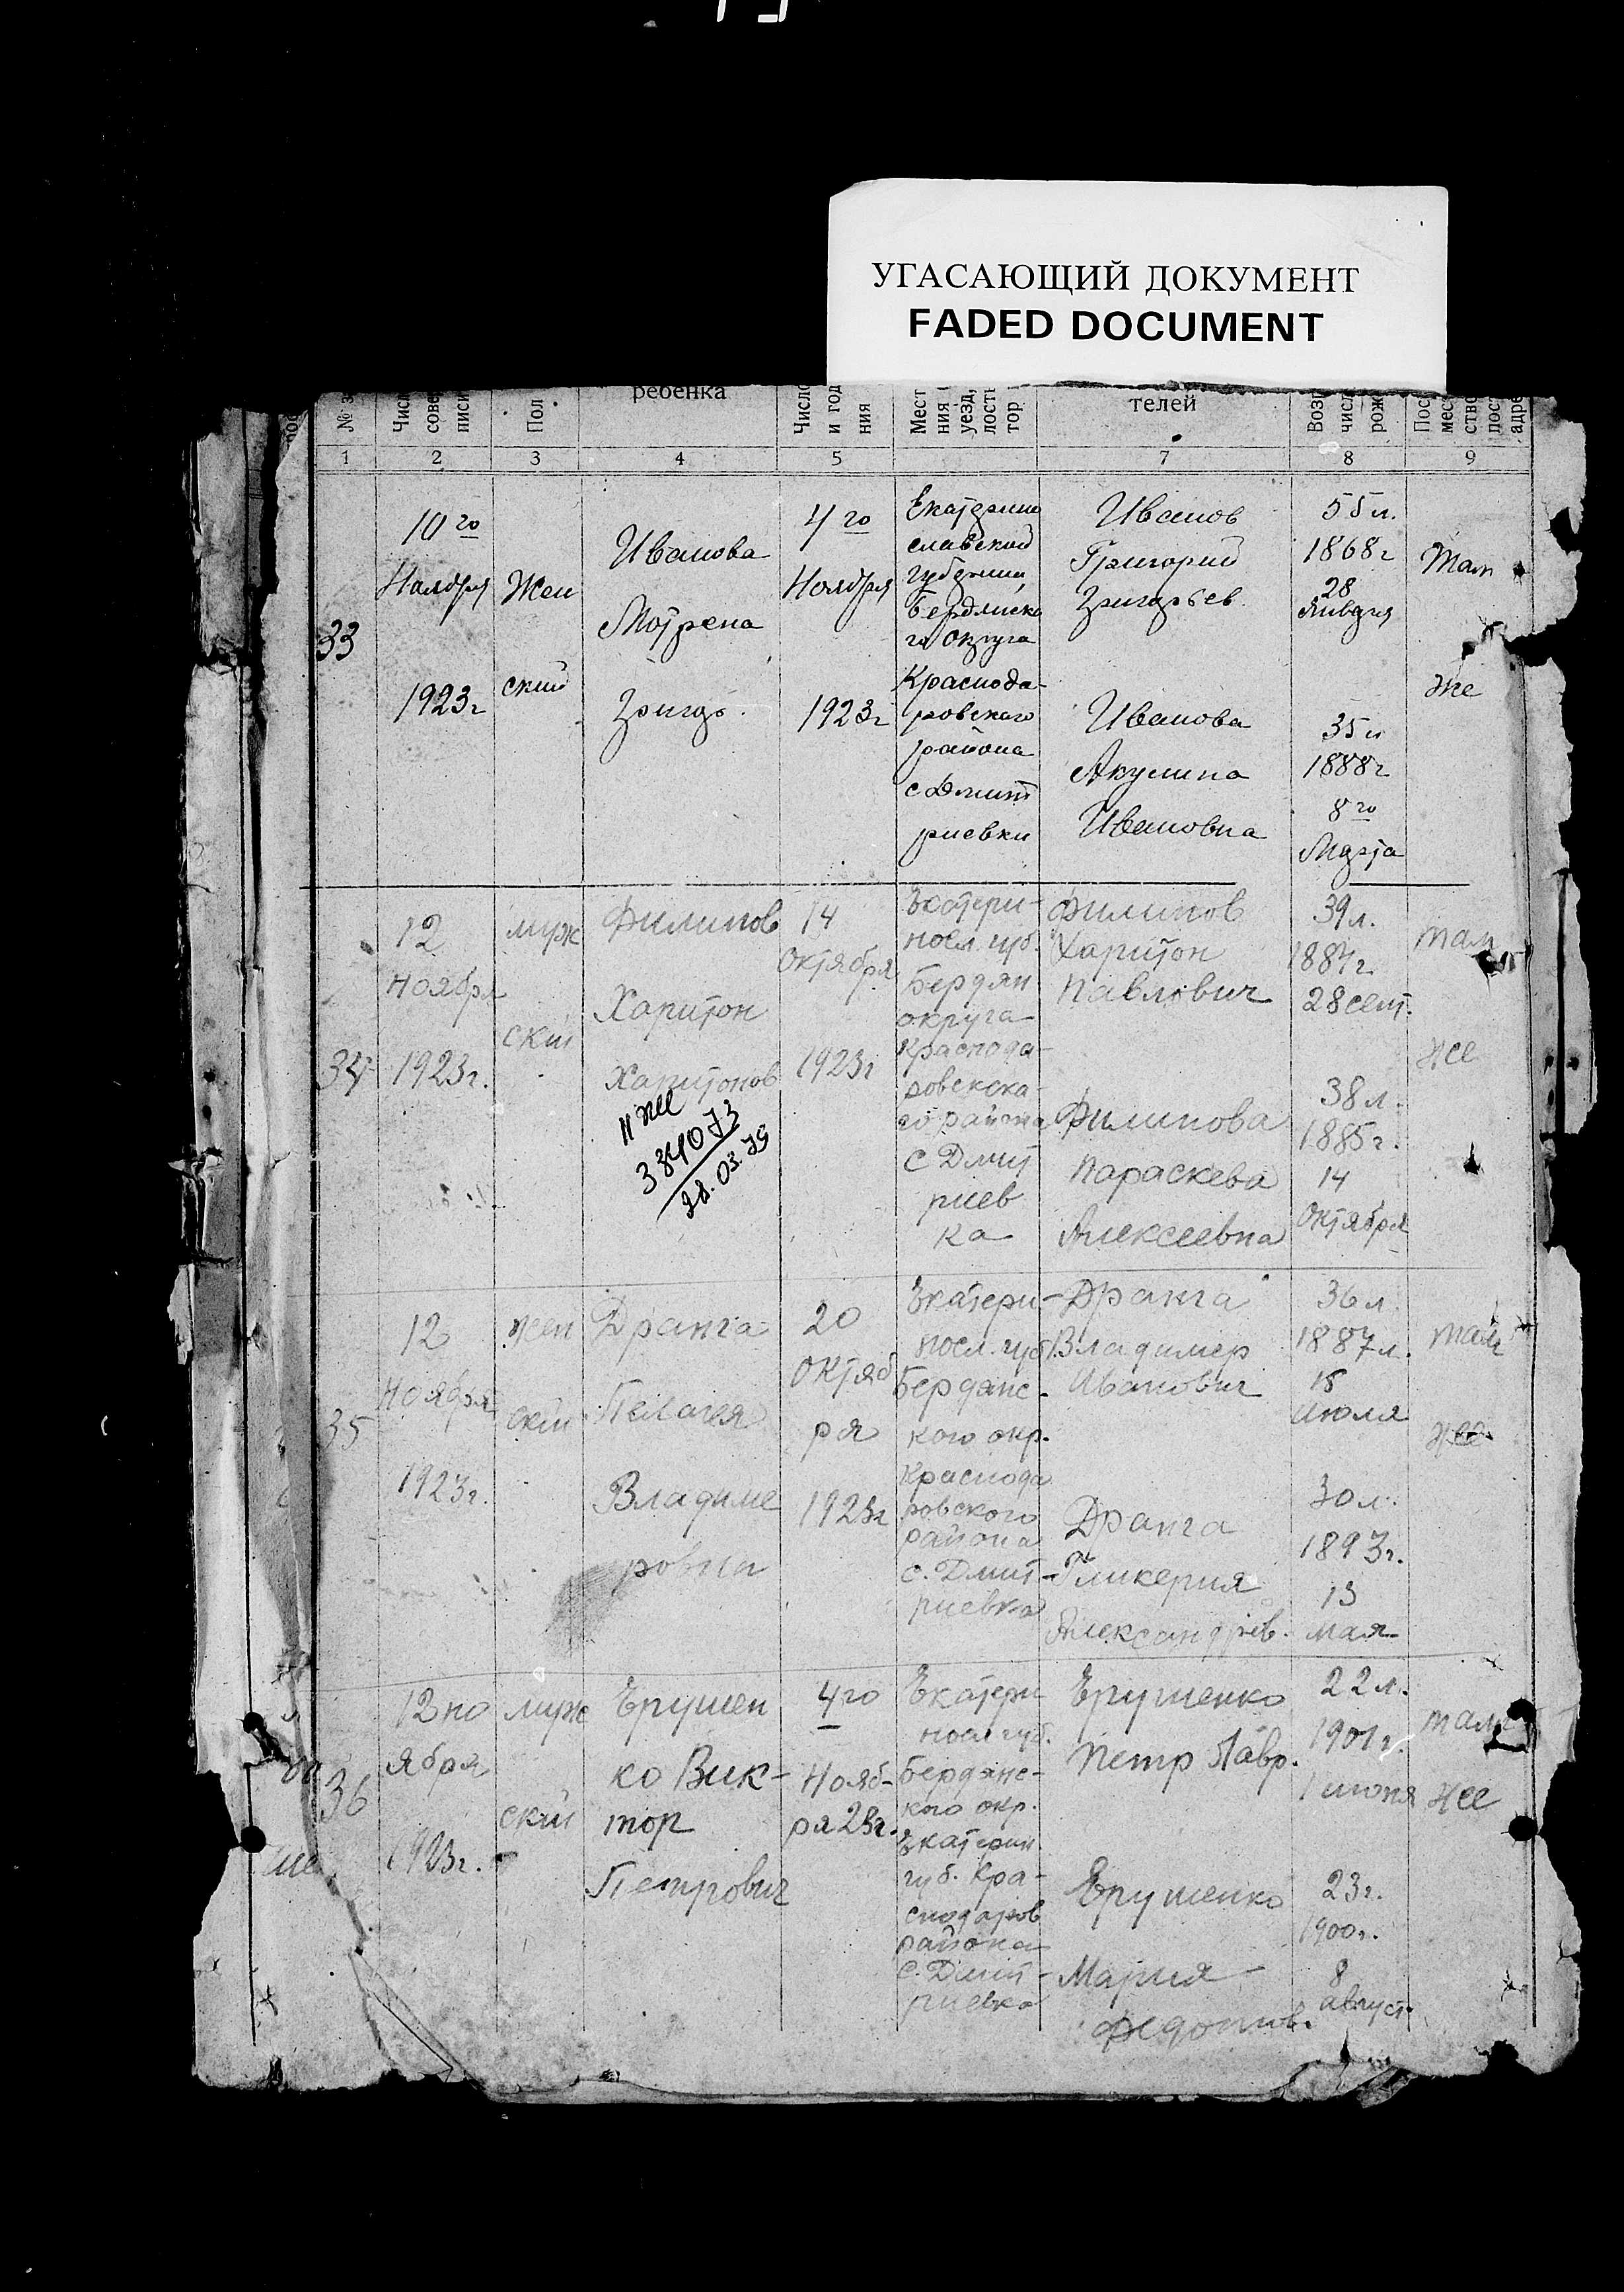 УГАСАЮЩИЙ ДОКУМЕНТ
FADED DOCUMENT
№
Чис
сове
писи
Пол
ребенка
Число
и год
ния
Мест
ния
уезд,
лость
тор
телей
Возр
числ
рожд
Пос
мес
ство
пост
адре
1
2
3
4
5
7
8
9
33
10 го
Ноября
1923г
Жен
ский
Иванова
Мотрена
Григор.
4 го
Ноября
1923г
Екатерино
славской
губернии
Бердянско
го округа
Краснода-
ровского
района
с Дмит
риевки
Иванов
Григорий
Григорьев.
Иванова
Акулина
Ивановна
55 л.
1868г
28
Января
35 л
1888г
8 го
Марта
Там
же
34
12
Ноября
1923г.
муж
ский
Филипов
Харитон
Харитонов
II ЖС
384073
28.03.79
14
Октября
1923г
Екатери-
носл. губ.
Бердян
округа
Краснода-
ровскока-
го района
с Дмит
риев
ка
Филипов
Харитон
Павлович
Филипова
Параскева
Алексеевна
39л.
1884г.
28 сент.
38 л.
1885г.
14
Октября
там
же
35
12
Ноября
1923г.
жен
ский
Дранга
Пелагея
Владиме
ровна
20
Октяб
ря
1923г
Екатери-
носл. губ.
Бердянс-
кого окр.
Краснода
ровского
района
с. Дмит-
риевка
Дранга
Владимер
Иванович
Дранга
Гликерия
Александров.
36 л.
1887г.
15
Июля
30 л.
1893г.
13
мая
там
же
36
12 но
ября
1923г.
муж
ский
Ерушен
ко Вик-
тор
Петрович
4 го
Нояб-
ря 23г.
Екатери
носл губ.
Бердянс-
кого окр.
Екатерин
губ. Кра-
снодаров
района
с. Дмит-
риевка
Ерушенко
Петр Лавр.
Ерушенко
Мария
Федотив.
22 л.
1901г.
1 июня
23г.
1900г.
8
август.
там
же